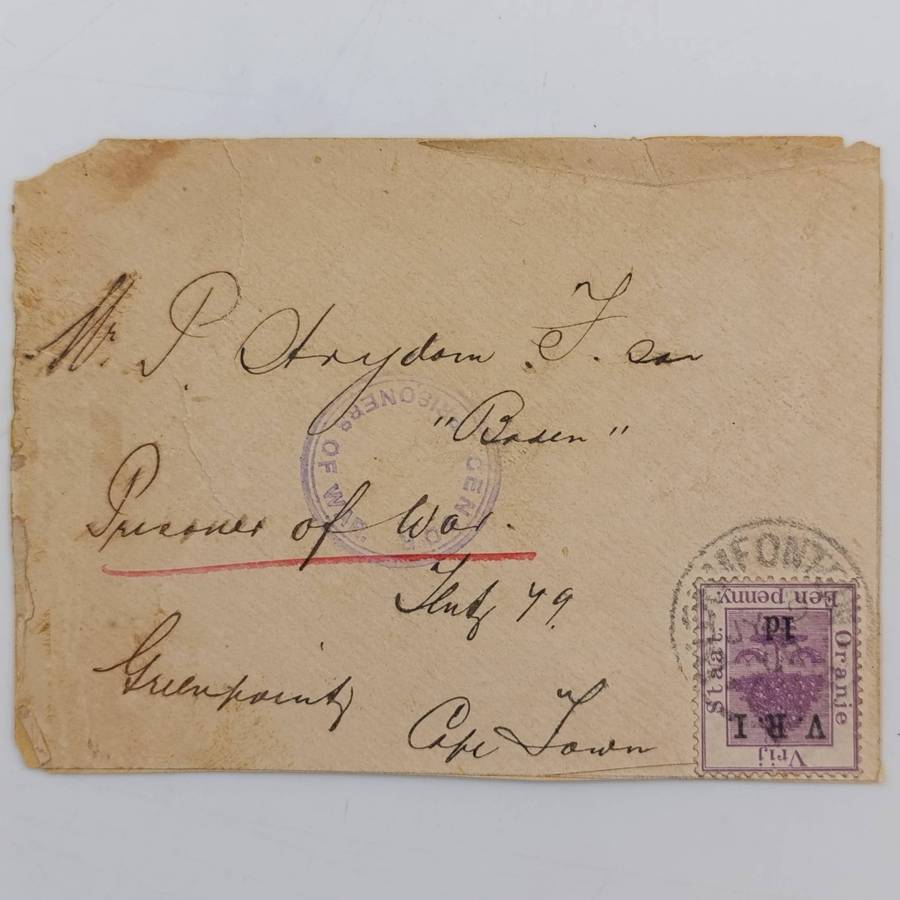 Mr. P. Strydom F. son
"Baden"
Prisoner of War.
Tent 79
Greenpoint
Cape Town
PRISONERS OF WAR
CENSOR
MFONT
Een penny
1d
Staat.
Oranje
V.R.I.
Vrij